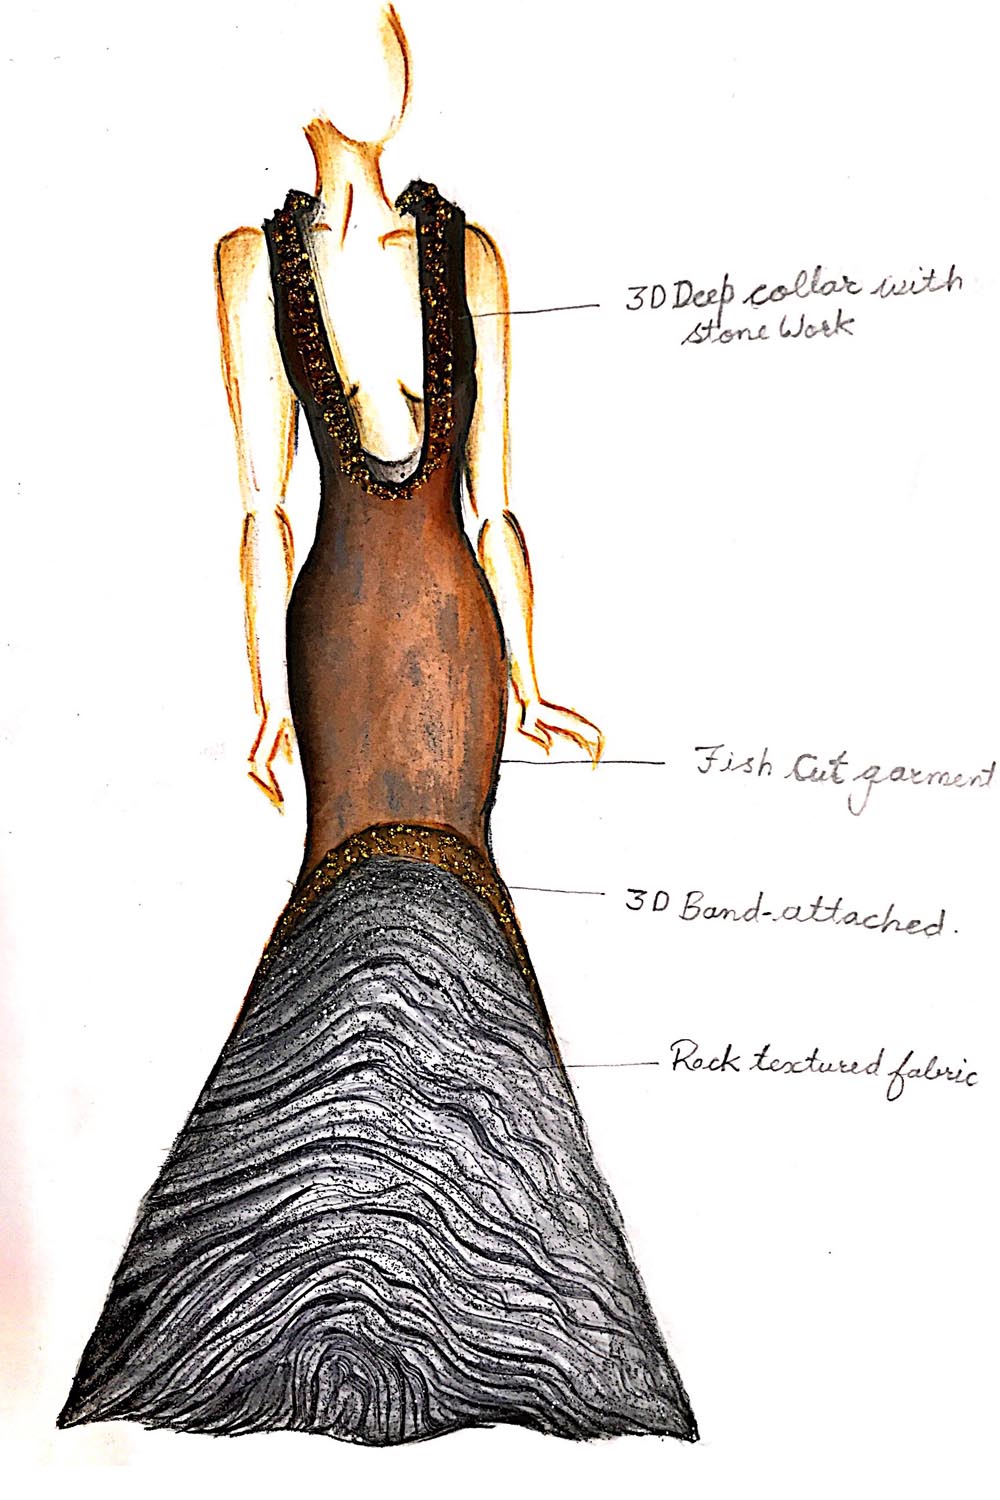 3D Deep collar with
stone Work
Fish Cut garment
3D Band-attached.
Rock textured fabric